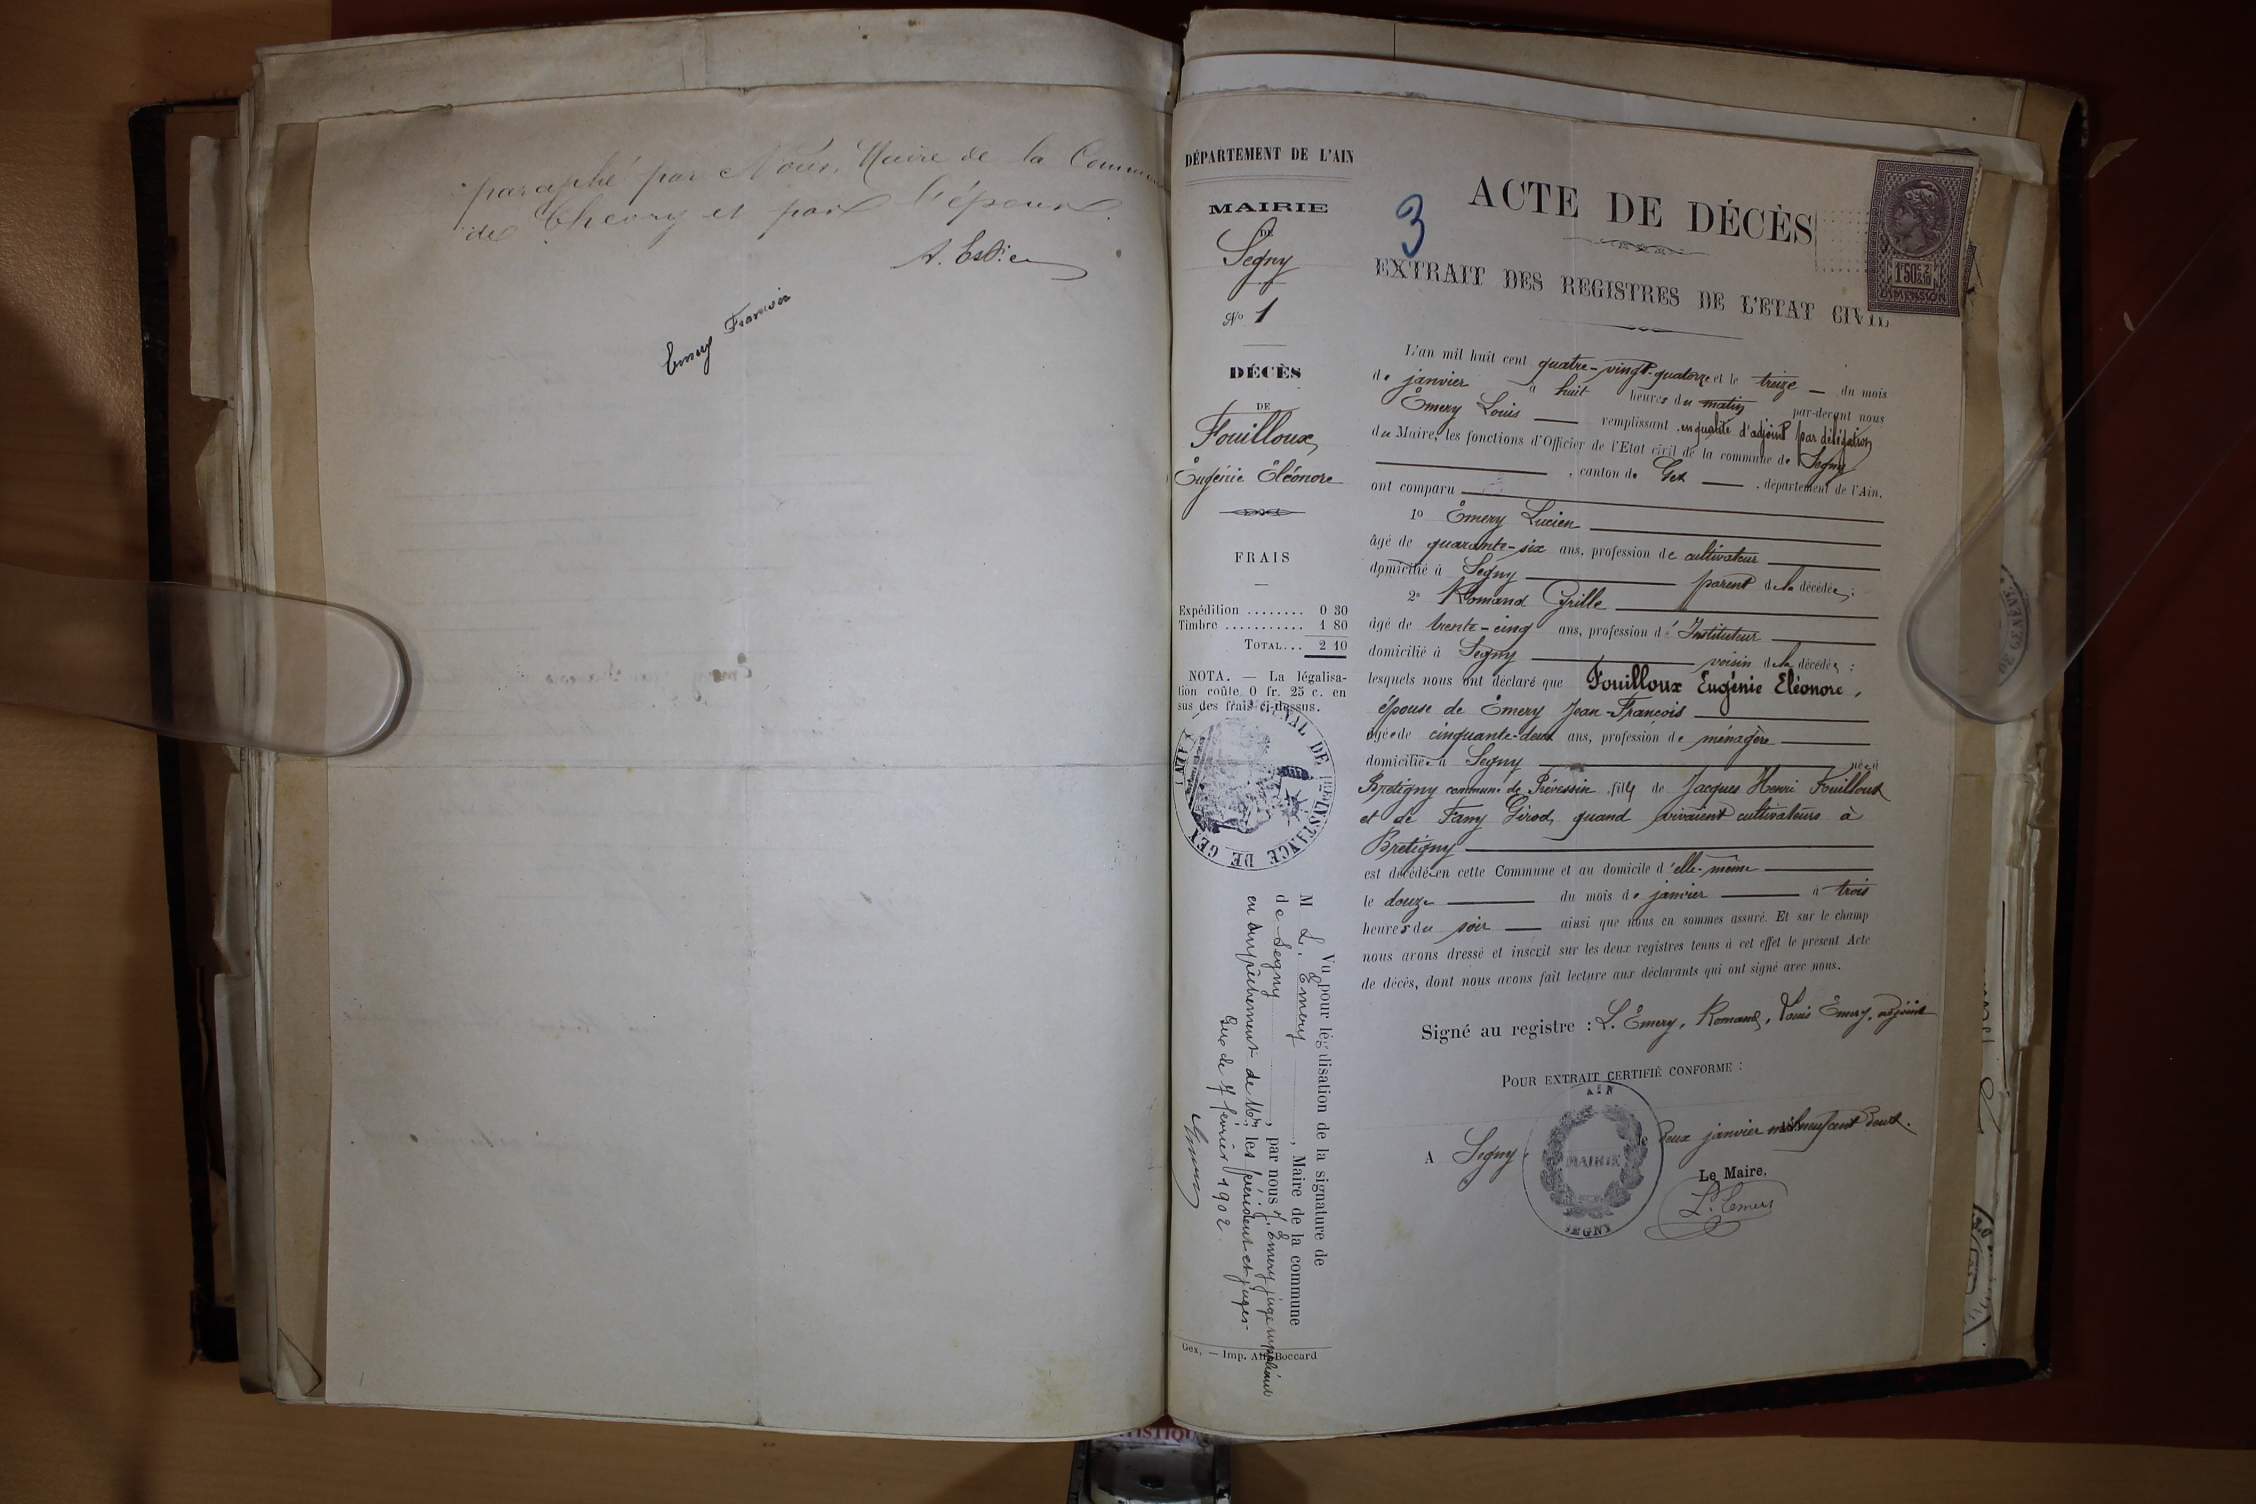 paraphé par Nous, Maire de la Commune
de Chevry et par l'époux.
Emery François
DÉPARTEMENT DE L'AIN
MAIRIE
DE
Segny
No 1
DÉCÈS
DE
Fouilloux
Eugénie Eléonore
FRAIS
Expédition ........ 0 30
Timbre ........... 1 80
TOTAL... 2 10
NOTA. — La légalisa-
tion coûte 0 fr. 25 c. en
sus des frais ci-dessus.
DE 1re INSTANCE DE GEX
Vu pour légalisation de la signature de
M L. Emery, Maire de la commune
de Segny, par nous J. Emery juge suppléant
en empêchement de MM. les président et juges
Gex le 7 février 1902
Gex, — Imp. Boccard
3
ACTE DE DÉCÈS
1f50c 2/10
DIMENSION
EXTRAIT DES REGISTRES DE L'ETAT CIVIL
L'an mil huit cent quatre-vingt-quatorze et le treize du mois
de janvier à huit heures du matin par-devant nous
Emery Louis remplissant en qualité d'adjoint par délégation
du Maire, les fonctions d'Officier de l'Etat civil de la commune de Segny
, canton de Gex, département de l'Ain,
ont comparu
1o Emery Lucien
âgé de quarante-six ans, profession de cultivateur
domicilié à Segny parent de la décédée;
2o Romand Cyrille
âgé de trente-cinq ans, profession d'Instituteur
domicilié à Segny voisin de la décédée:
lesquels nous ont déclaré que Fouilloux Eugénie Eléonore,
épouse de Emery Jean-François
âgée de cinquante-deux ans, profession de ménagère
domiciliée à Segny née à
Bretigny commune de Prévessin, fille de Jacques Henri Fouilloux
et de Fany Girod, quand vivaient cultivateurs à
Bretigny
est décédée en cette Commune et au domicile d'elle-même
le douze du mois de janvier à trois
heures du soir ainsi que nous en sommes assuré. Et sur le champ
nous avons dressé et inscrit sur les deux registres tenus à cet effet le présent Acte
de décès, dont nous avons fait lecture aux déclarants qui ont signé avec nous.
Signé au registre : L. Emery, Romand, Louis Emery, adjoint
POUR EXTRAIT CERTIFIÉ CONFORME :
AIN
MAIRIE
SEGNY
A Segny, le deux janvier mil neuf cent deux.
Le Maire,
L. Emery